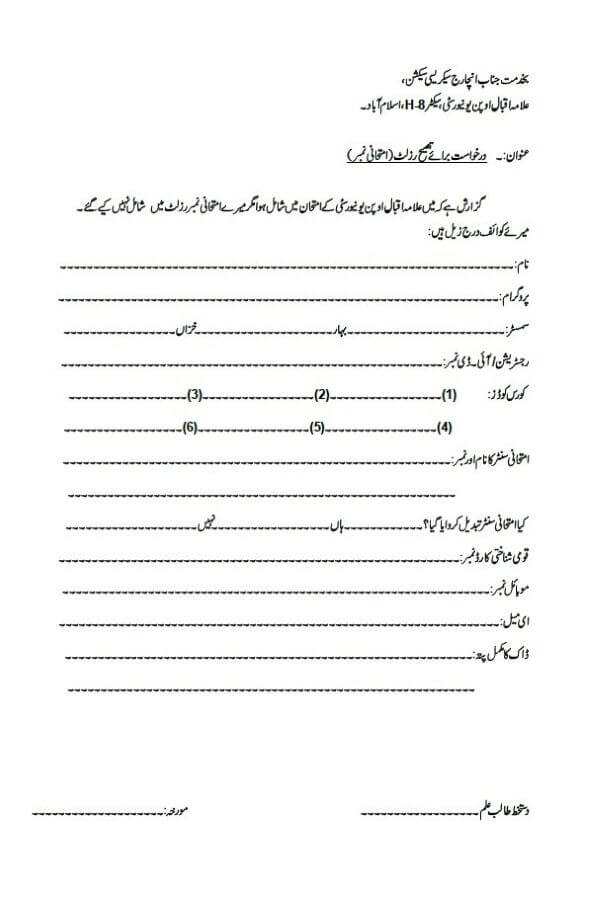 بخدمت جناب انچارج سیکریسی سیکشن،
علامہ اقبال اوپن یونیورسٹی، سیکٹر H-8، اسلام آباد۔
عنوان:۔ درخواست برائے تصحیح رزلٹ (امتحانی نمبر)
گزارش ہے کہ میں علامہ اقبال اوپن یونیورسٹی کے امتحان میں شامل ہوا مگر میرے امتحانی نمبر رزلٹ میں شامل نہیں کیے گئے۔
میرے کوائف درج زیل ہیں:
نام:۔۔۔۔۔۔۔۔۔۔۔۔۔۔۔۔۔۔۔۔
پروگرام:۔۔۔۔۔۔۔۔۔۔۔۔۔۔۔۔۔۔۔۔
سمسٹر:۔۔۔۔۔۔۔۔۔۔بہار۔۔۔۔۔۔۔۔۔۔خزاں۔۔۔۔۔۔۔۔۔۔
رجسٹریشن/آئی۔ڈی نمبر:۔۔۔۔۔۔۔۔۔۔۔۔۔۔۔۔۔۔۔۔
کورس کوڈز: (1)۔۔۔۔۔۔۔۔۔۔(2)۔۔۔۔۔۔۔۔۔۔(3)۔۔۔۔۔۔۔۔۔۔
(4)۔۔۔۔۔۔۔۔۔۔(5)۔۔۔۔۔۔۔۔۔۔(6)۔۔۔۔۔۔۔۔۔۔
امتحانی سنٹر کا نام اور نمبر:۔۔۔۔۔۔۔۔۔۔۔۔۔۔۔۔۔۔۔۔
۔۔۔۔۔۔۔۔۔۔۔۔۔۔۔۔۔۔۔۔
کیا امتحانی سنٹر تبدیل کروایا گیا؟۔۔۔۔۔۔۔۔۔۔ہاں۔۔۔۔۔۔۔۔۔۔نہیں۔۔۔۔۔۔۔۔۔۔
قومی شناختی کارڈ نمبر:۔۔۔۔۔۔۔۔۔۔۔۔۔۔۔۔۔۔۔۔
موبائل نمبر:۔۔۔۔۔۔۔۔۔۔۔۔۔۔۔۔۔۔۔۔
ای میل:۔۔۔۔۔۔۔۔۔۔۔۔۔۔۔۔۔۔۔۔
ڈاک کا مکمل پتہ:۔۔۔۔۔۔۔۔۔۔۔۔۔۔۔۔۔۔۔۔
۔۔۔۔۔۔۔۔۔۔۔۔۔۔۔۔۔۔۔۔
دستخط طالب علم۔۔۔۔۔۔۔۔۔۔ مورخہ:۔۔۔۔۔۔۔۔۔۔